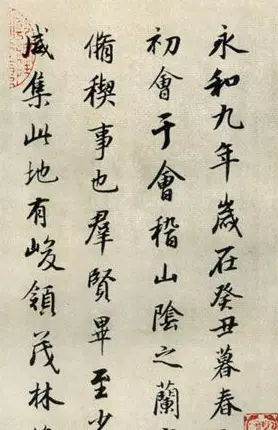 永和九年歲在癸丑暮春
初會于會稽山陰之蘭
脩稧事也羣賢畢至少
咸集此地有峻領茂林